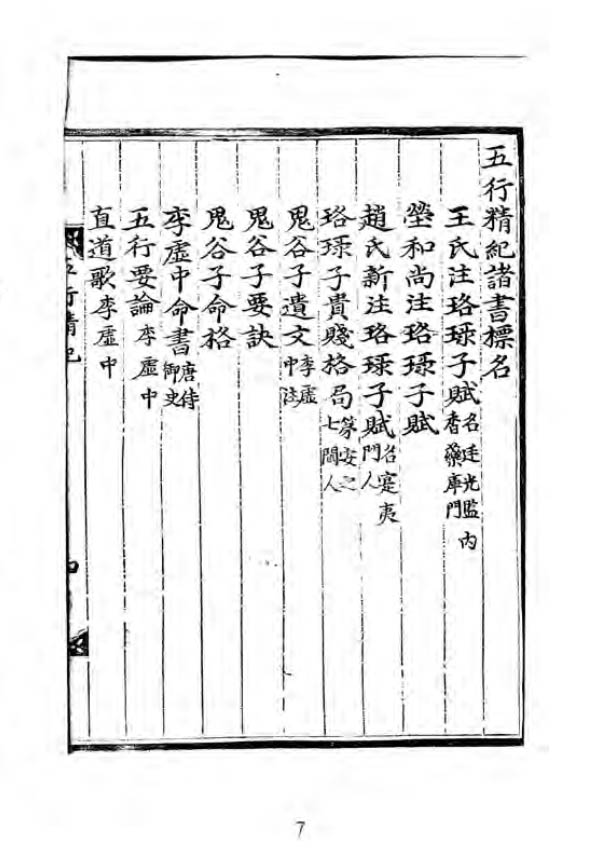 五行精紀諸書標名
王氏注珞琭子賦名廷光監內香藥庫門
瑩和尚注珞琭子賦
趙氏新注珞琭子賦名寔夷門人
珞琭子貴賤格局篆安之七閩人
鬼谷子遺文李虛中注
鬼谷子要訣
鬼谷子命格
李虛中命書唐侍御史
五行要論李虛中
直道歌李虛中
五行精紀
7